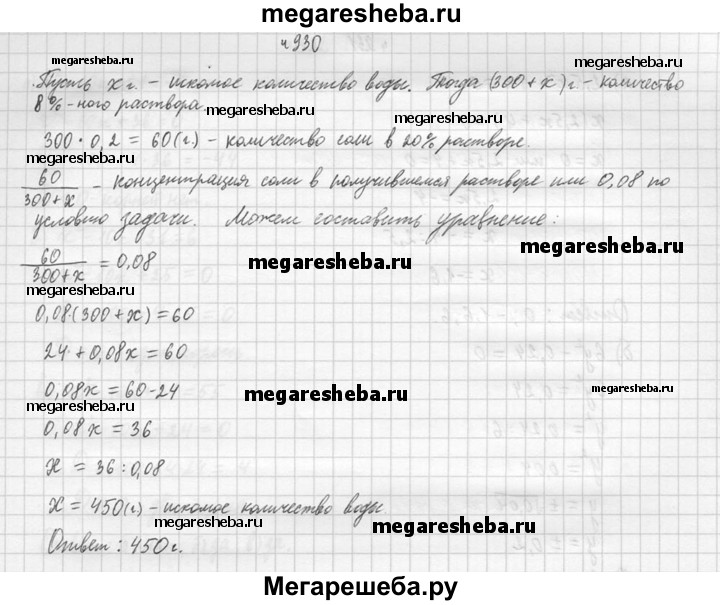 megaresheba.ru
ч.930
megaresheba.ru
Пусть x г. – искомое количество воды. Тогда (300 + x) г – количество
megaresheba.ru
8%-ного раствора.
megaresheba.ru
300 · 0,2 = 60 (г.) – количество соли в 20% растворе.
megaresheba.ru
60/300+x – концентрация соли в получившемся растворе или 0,08 по
megaresheba.ru
условию задачи. Можем составить уравнение:
megaresheba.ru
60/300+x = 0,08
megaresheba.ru
megaresheba.ru
0,08(300+x) = 60
24 + 0,08x = 60
0,08x = 60-24
megaresheba.ru
megaresheba.ru
megaresheba.ru
0,08x = 36
x = 36 : 0,08
x = 450 (г) – искомое количество воды.
megaresheba.ru
megaresheba.ru
Ответ: 450 г.
megaresheba.ru
Мегарешеба.ру